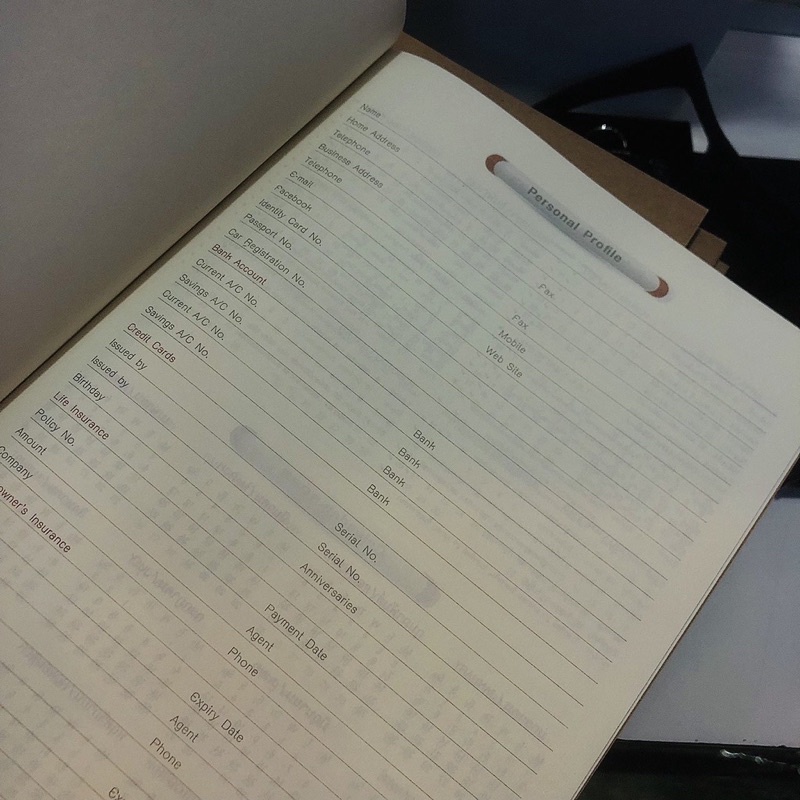 Personal Profile
Name
Home Address
Telephone Fax
Business Address
Telephone Fax
E-mail Mobile
Facebook Web Site
Identity Card No.
Passport No.
Car Registration No.
Bank Account
Current A/C No. Bank
Savings A/C No. Bank
Current A/C No. Bank
Savings A/C No. Bank
Credit Cards
Issued by Serial No.
Issued by Serial No.
Birthday Anniversaries
Life Insurance
Policy No. Payment Date
Amount Agent
Company Phone
owner's Insurance
Expiry Date
Agent
Phone